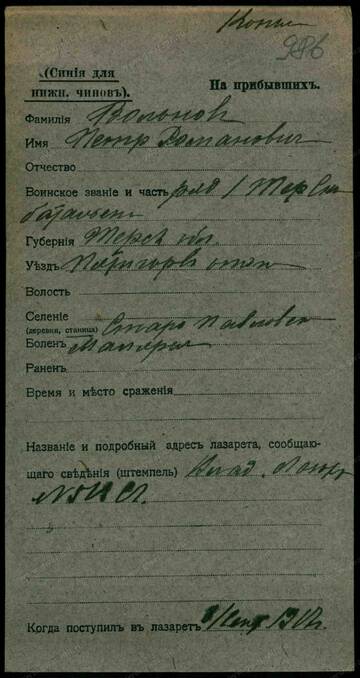 Копия
986
(Синія для
нижн. чиновъ).
На прибывшихъ.
Фамилія Вольнов
Имя Петр Романович
Отчество
Воинское званіе и часть ряд 1 Тер
баталь
Губернія Терск обл.
Уѣздъ Пятигорск отд
Волость
Селеніе
(деревня, станица) Старо Павловск
Боленъ Малярия
Раненъ
Время и мѣсто сраженія
Названіе и подробный адресъ лазарета, сообщаю-
щаго свѣдѣнія (штемпель) Влад.
Когда поступилъ в лазаретъ